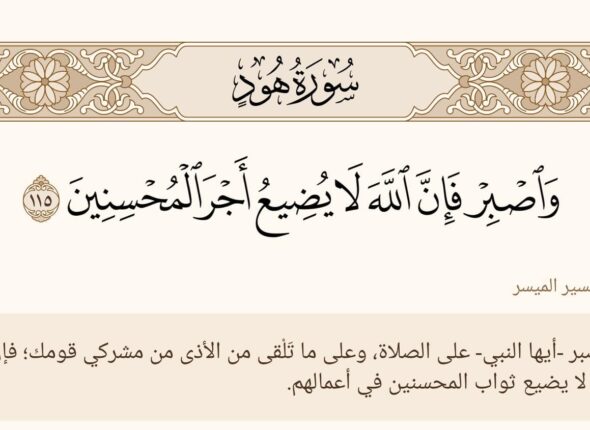 سُورَةُ هُودٍ
وَٱصۡبِرۡ فَإِنَّ ٱللَّهَ لَا يُضِيعُ أَجۡرَ ٱلۡمُحۡسِنِينَ ١١٥
الميسر
-أيها النبي- على الصلاة، وعلى ما تَلْقى من الأذى من مشركي قومك؛
لا يضيع ثواب المحسنين في أعمالهم.